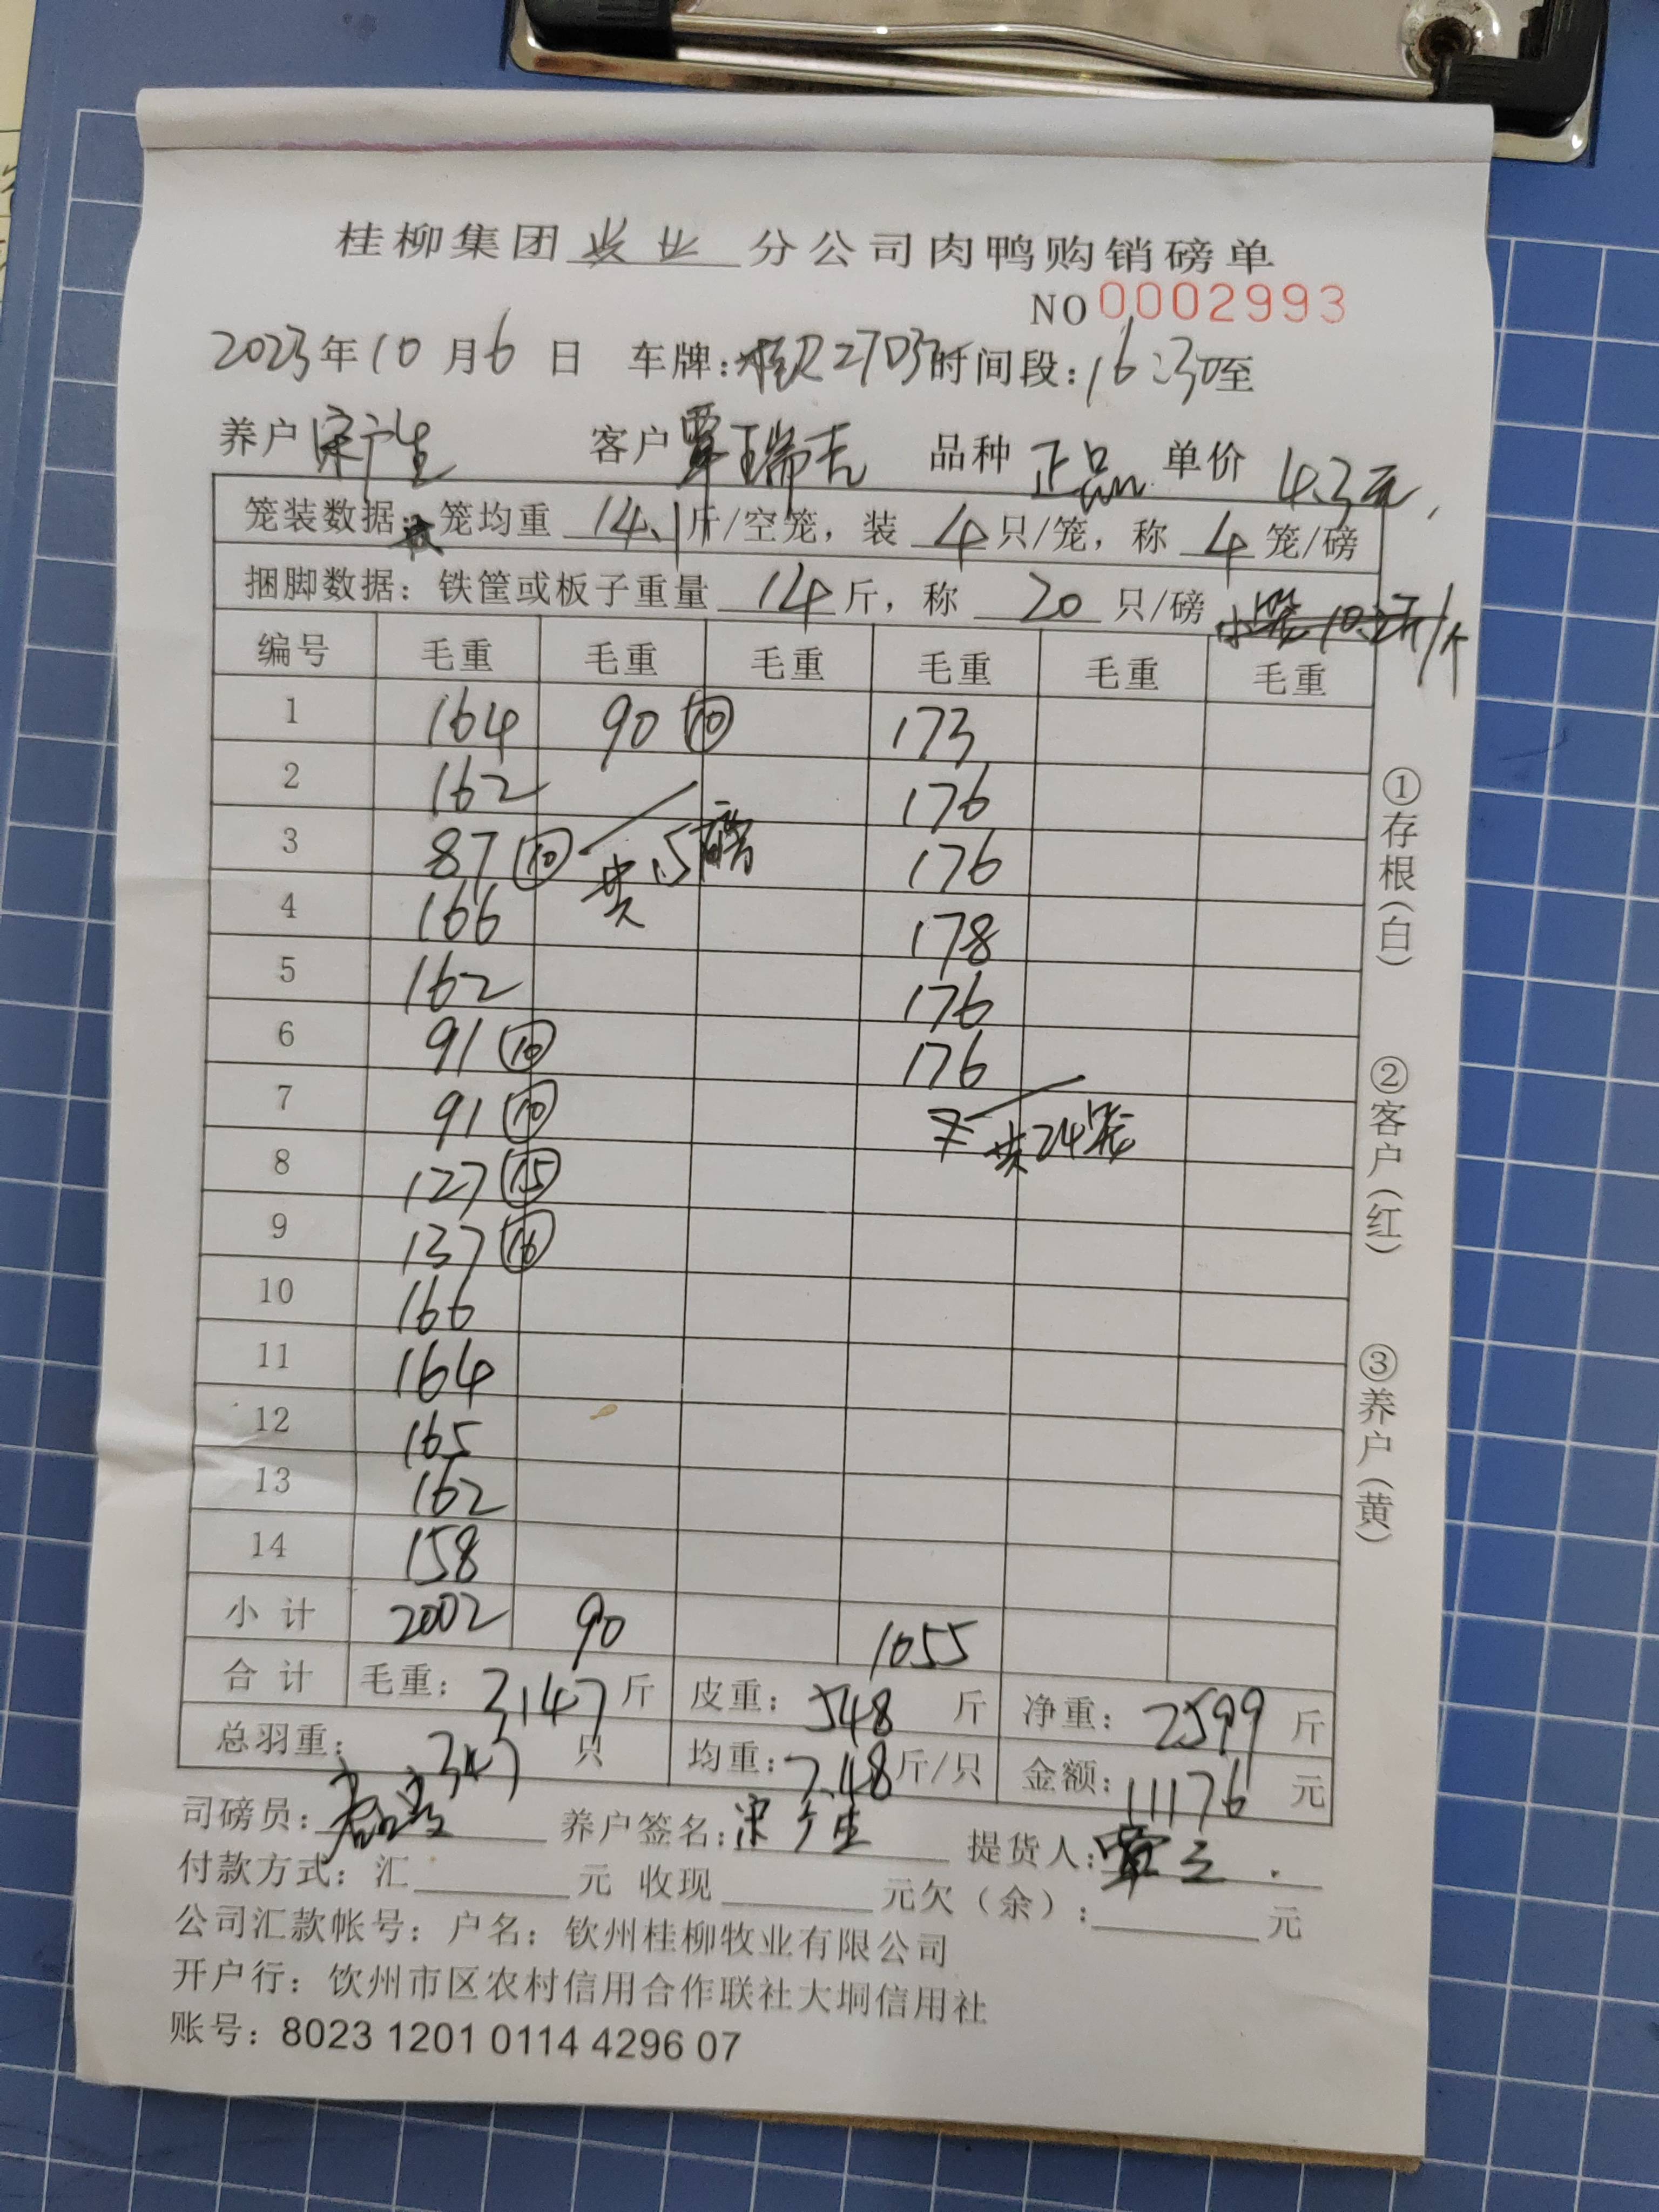 桂柳集团 牧业 分公司肉鸭购销磅单
NO 0002993
2023年10月6日 车牌: 时间段:16:30至
养户 宋广生 客户 覃瑞吉 品种 正品 单价 4.3元
笼装数据: 笼均重 14.1斤/空笼,装 4只/笼,称 4笼/磅
捆脚数据:铁筐或板子重量 14斤,称 20只/磅
编号 毛重 毛重 毛重 毛重 毛重 毛重
1 164 90 ⑩ 173
2 162 176
3 87 ⑩ 共15磅 176
4 166 178
5 162 176
6 91 ⑩ 176
7 91 ⑩ 共24笼
8 127 ⑮
9 137 ⑯
10 166
11 164
12 165
13 162
14 158
小计 2002 90 1055
合计 毛重:3147斤 皮重:548斤 净重:2599斤
总羽重:347只 均重:7.48斤/只 金额:11176元
司磅员: 养户签名:宋广生 提货人:
付款方式:汇 元 收现 元欠(余): 元
公司汇款帐号:户名:钦州桂柳牧业有限公司
开户行:饮州市区农村信用合作联社大垌信用社
账号:8023 1201 0114 4296 07
①存根(白) ②客户(红) ③养户(黄)